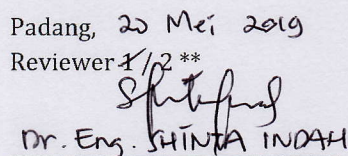 Padang, 20 Mei 2019
Reviewer 1 / 2 **
Dr. Eng. SHINTA INDAH